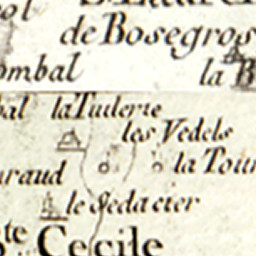 ol
de Bosegros
ombal
la B
bal la Tuilerie
les Vedels
la Tour
uraud
le Sedacier
te Cecile